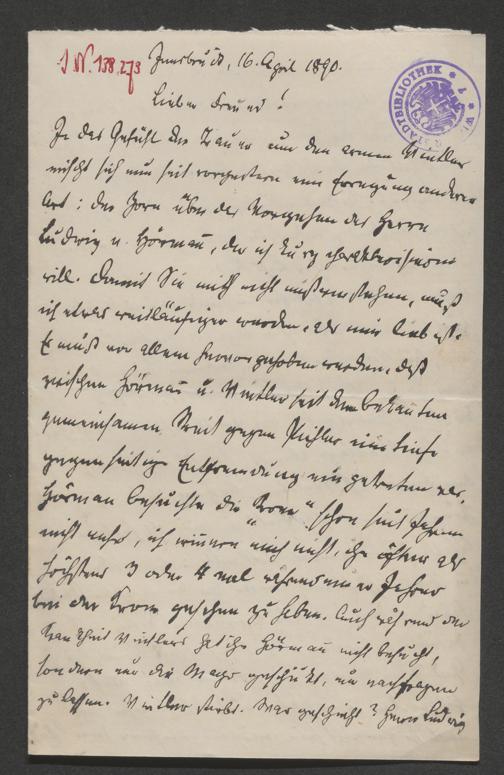 I.N. 138.273
Innsbruck, 16. April 1890.
Lieber Freund!
In das Gefühl der Trauer um den armen Vintler
mischt sich nun seit vorgestern eine Erregung anderer
Art: der Zorn über das Vorgehen des Herrn
Ludwig v. Hörmann, das ich kurz charakterisieren
will. Damit Sie mich nicht mißverstehen, muß
ich etwas weitläufiger werden, als mir lieb ist.
Es muß vor allem hervorgehoben werden, daß
zwischen Hörmann u. Vintler seit dem bekannten
gemeinsamen Streit gegen Pichler eine tiefe
gegenseitige Entfremdung eingetreten war.
Hörmann besuchte die "Krone" schon seit Jahren
nicht mehr, ich erinnere mich nicht, ihn öfter als
höchstens 3 oder 4 mal während meiner Jahre
bei der Krone gesehen zu haben. Auch während der
Krankheit Vintlers hat ihn Hörmann nicht besucht,
sondern nur die Magd geschickt, um nachfragen
zu lassen. Vintler stirbt. Was geschieht? Herr Ludwig
STADTBIBLIOTHEK